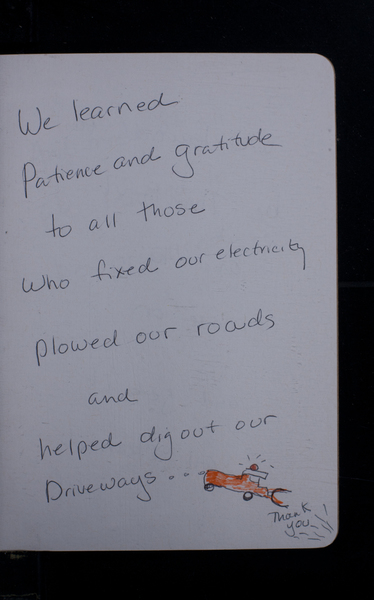 We learned
Patience and gratitude
to all those
who fixed our electricity
plowed our roads
and
helped dig out our
Driveways...
Thank
you